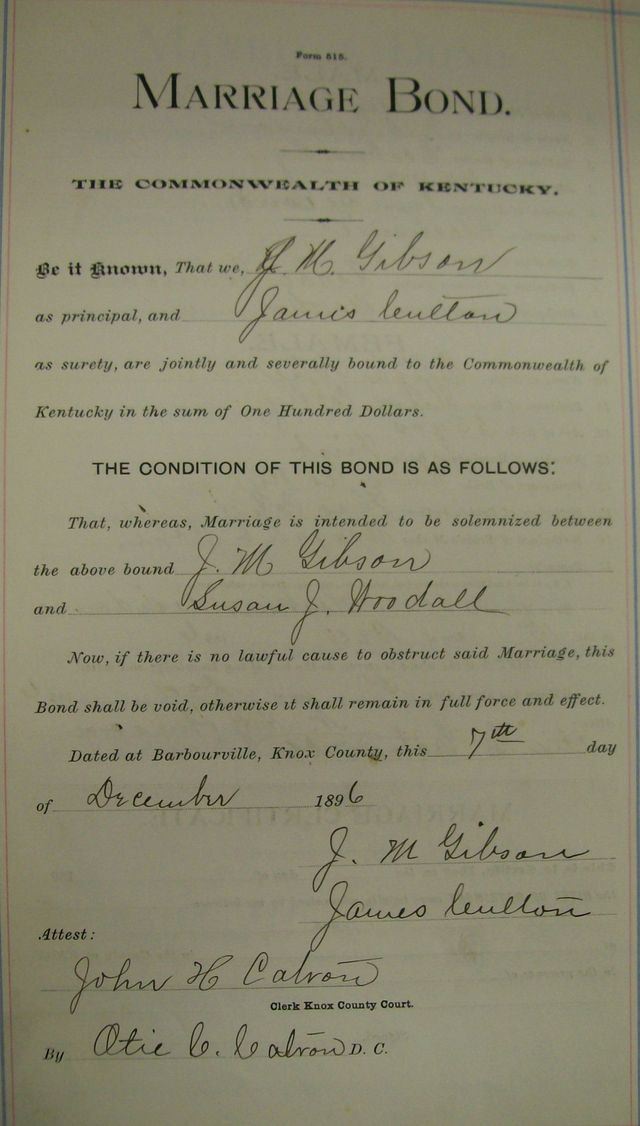 Form 515.
MARRIAGE BOND.
THE COMMONWEALTH OF KENTUCKY.
Be it Known, That we, J. M. Gibson
as principal, and James Culton
as surety, are jointly and severally bound to the Commonwealth of
Kentucky in the sum of One Hundred Dollars.
THE CONDITION OF THIS BOND IS AS FOLLOWS:
That, whereas, Marriage is intended to be solemnized between
the above bound J. M Gibson
and Susan J. Woodall
Now, if there is no lawful cause to obstruct said Marriage, this
Bond shall be void, otherwise it shall remain in full force and effect.
Dated at Barbourville, Knox County, this 7th day
of December 1896
J. M Gibson
James Culton
Attest:
John H Catron
Clerk Knox County Court.
By Otie C. Catron D. C.